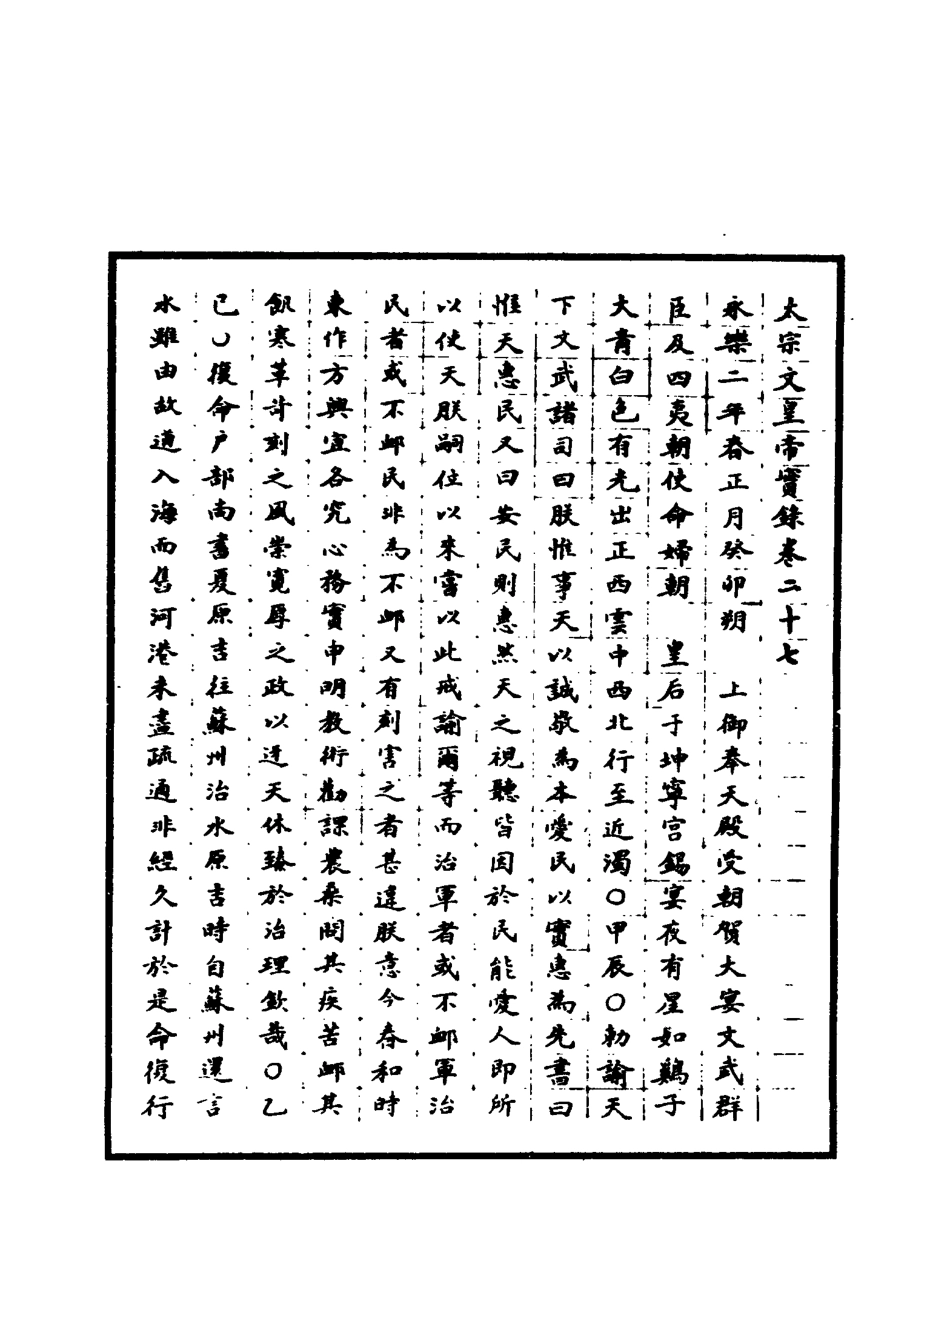 太宗文皇帝實錄卷二十七
永樂二年春正月癸卯朔　上御奉天殿受朝賀大宴文武群
臣及四夷朝使命婦朝　皇后于坤寧宮錫宴夜有星如雞子
大青白色有光出正西雲中西北行至近濁○甲辰○勅諭天
下文武諸司曰朕惟事天以誠敬為本愛民以實惠為先書曰
惟天惠民又曰安民則惠然天之視聽皆因於民能愛人即所
以使天朕嗣位以來嘗以此戒諭爾等而治軍者或不卹軍治
民者或不卹民非為不卹又有刻害之者甚違朕意今春和時
東作方興宜各究心務實申明教術勸課農桑問其疾苦卹其
飢寒革計刻之風崇寬厚之政以迓天休臻於治理欽哉○乙
已○復命户部尚書夏原吉往蘇州治水原吉時自蘇州還言
水雖由故道入海而舊河港未盡疏通非經久計於是命復行